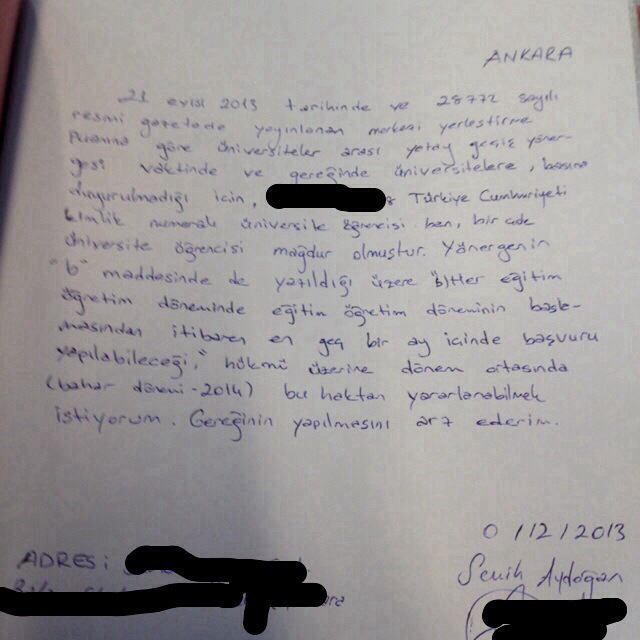 ANKARA
21 eylül 2013 tarihinde ve 28772 sayılı
resmi gazetede yayınlanan merkezi yerleştirme
Puanına göre üniversiteler arası yatay geçiş yöner-
gesi vaktinde ve gereğinde üniversitelere, basına
duyurulmadığı için, Türkiye Cumhuriyeti
kimlik numaralı üniversite öğrencisi ben, bir çok
üniversite öğrencisi mağdur olmuştur. Yönergenin
"b" maddesinde de yazıldığı üzere "bitler eğitim
öğretim döneminde eğitim öğretim döneminin başla-
masından itibaren en geç bir ay içinde başvuru
yapılabileceği," hükmü üzerine dönem ortasında
(bahar dönemi-2014) bu haktan yararlanabilmek
istiyorum. Gereğinin yapılmasını arz ederim.
0 /12/2013
ADRESİ
Semih Aydoğan